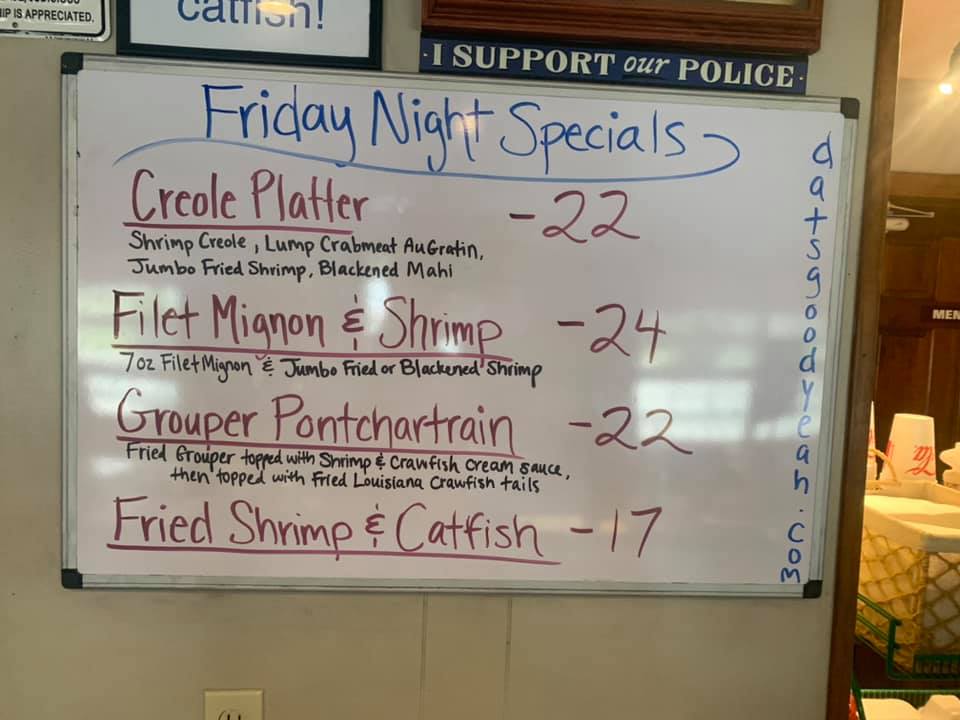 IP IS APPRECIATED.
catfish!
·I SUPPORT our POLICE·
Friday Night Specials
Creole Platter -22
Shrimp Creole, Lump Crabmeat Au Gratin,
Jumbo Fried Shrimp, Blackened Mahi
Filet Mignon & Shrimp -24
7oz Filet Mignon & Jumbo Fried or Blackened Shrimp
Grouper Pontchartrain -22
Fried Grouper topped with Shrimp & Crawfish cream sauce,
then topped with Fried Louisiana Crawfish tails
Fried Shrimp & Catfish -17
datsgoodyeah.com
MEN